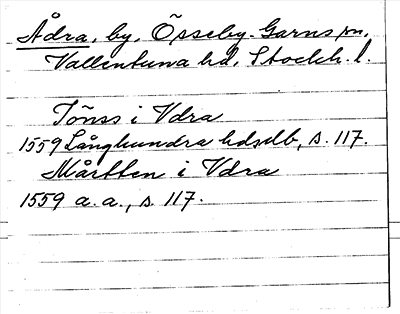 Ådra, by, Össeby-Garns sn,
Vallentuna hd, Stockh. l.
Tönss i Vdra
1559 Långhundra hdsdb, s. 117.
Mårtten i Vdra
1559 a. a., s. 117.